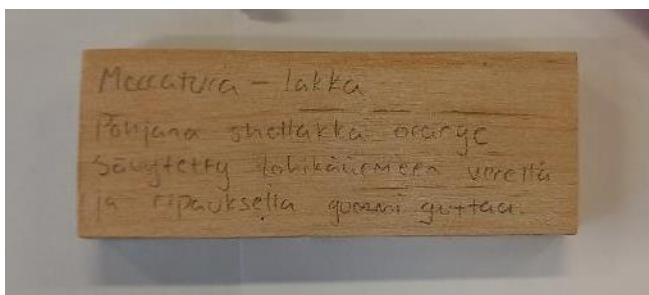 Meccatura - lakka
Pohjana shellakka orange
Sävytetty lohikäärmeen verellä
ja ripauksella gummi guttaa.